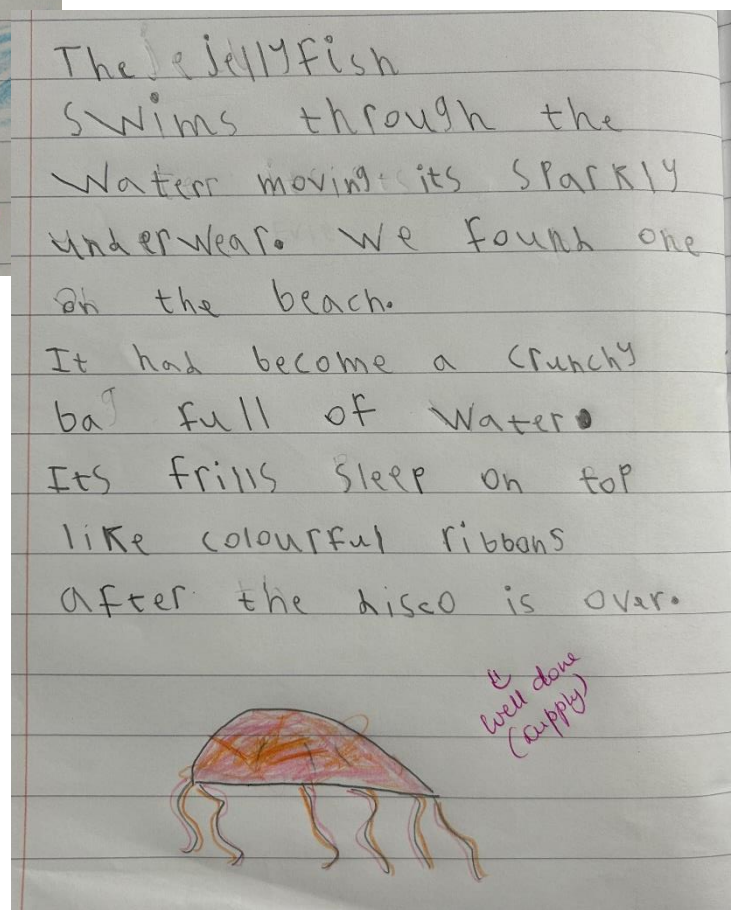 The jellyfish
swims through the
water moving its sparkly
underwear. We found one
on the beach.
It had become a crunchy
bag full of water.
Its frills sleep on top
like colourful ribbons
after the disco is over.
well done
(supply)